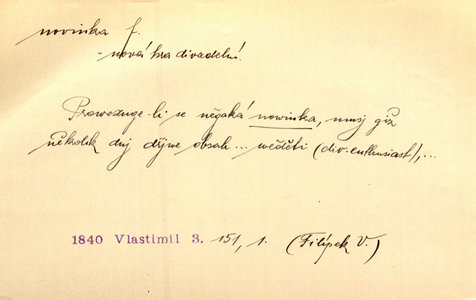 novinka f.
- nová hra divadelní.
Prowozuge-li se něgaká nowinka, musj giž
několik dnj dřjwe obsah ... wěděti (div. enthusiast), ...
1840 Vlastimil 3. 151, 1. (Filípek V.)